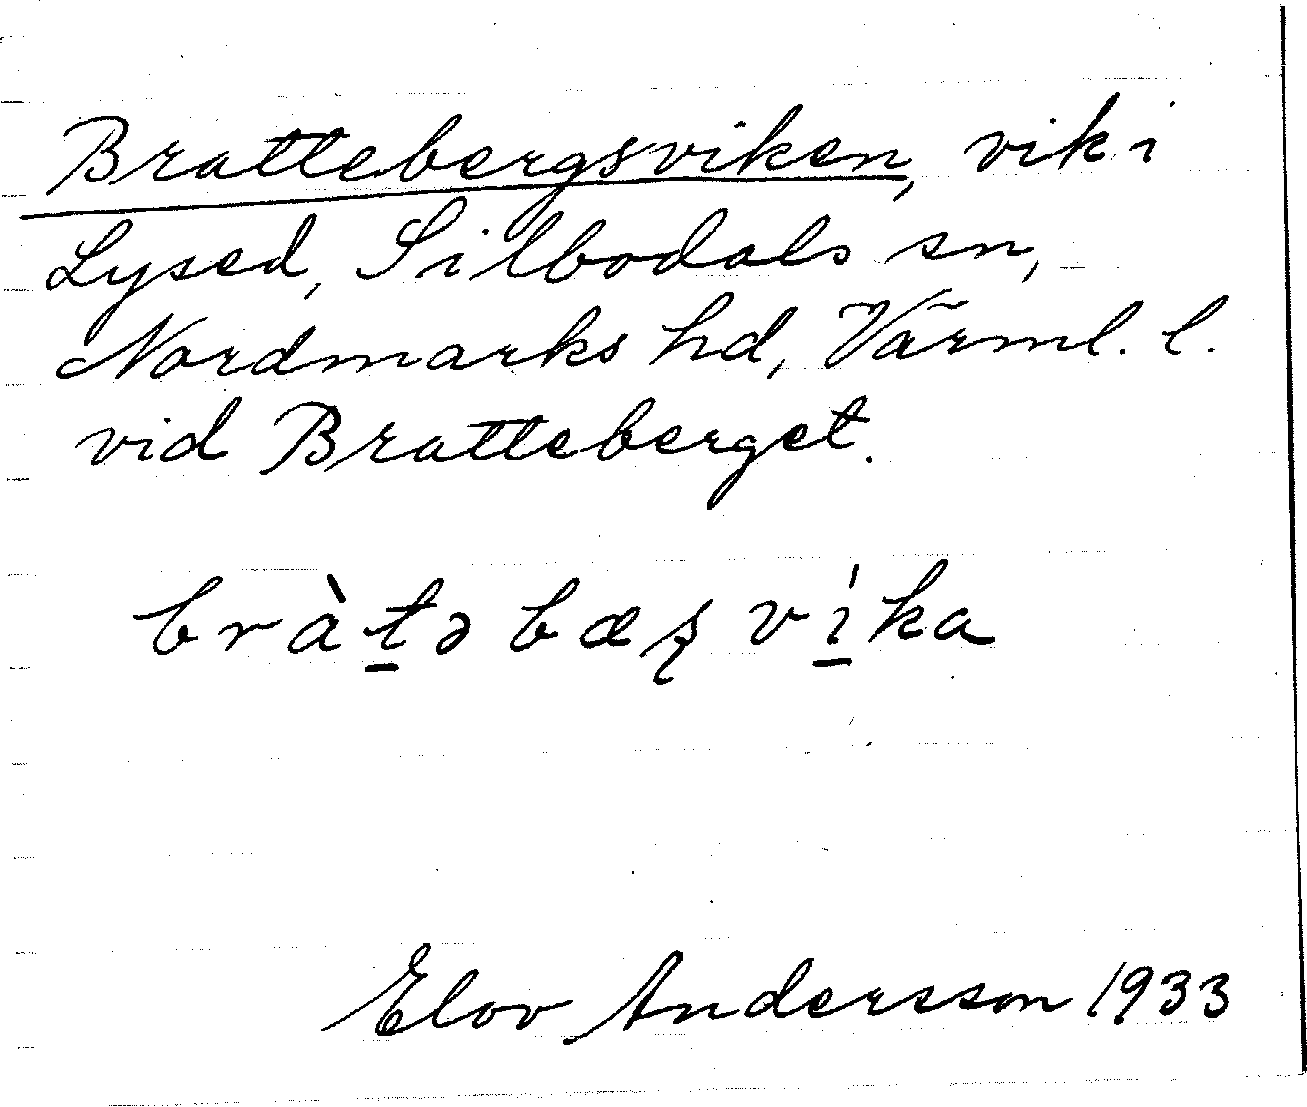 Brattebergsviken, vik i
Lysed, Silbodals sn,
Nordmarks hd, Värml. l.
vid Bratteberget.
bràt̠əbæʂví̠ka
Elov Andersson 1933